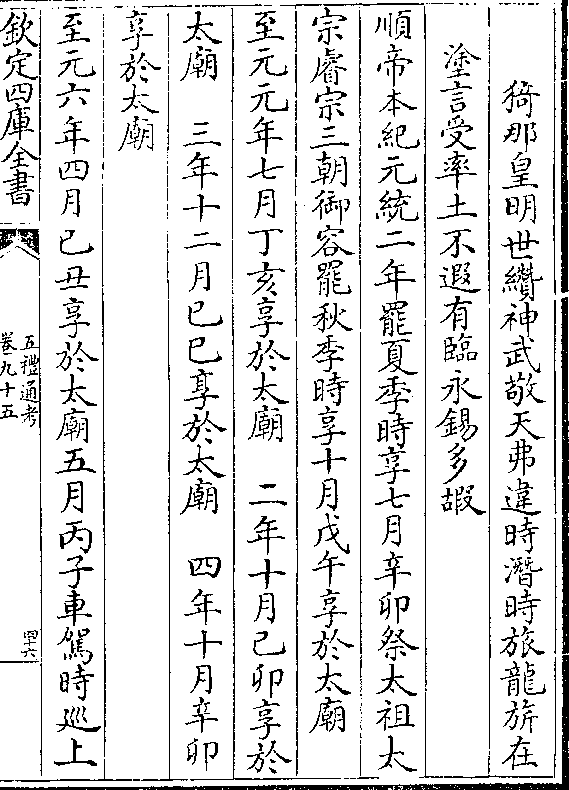 猗那皇明世纘神武敬天弗違時潛時旅龍旂在
塗言受率土不遐有臨永錫多嘏
順帝本紀元統二年罷夏季時享七月辛卯祭太祖太
宗睿宗三朝御容罷秋季時享十月戊午享於太廟
至元元年七月丁亥享於太廟　二年十月己卯享於
太廟　三年十二月己巳享於太廟　四年十月辛卯
享於太廟
至元六年四月己丑享於太廟五月丙子車駕時廵上
欽定四庫全書
五禮通考
卷九十五
四十六